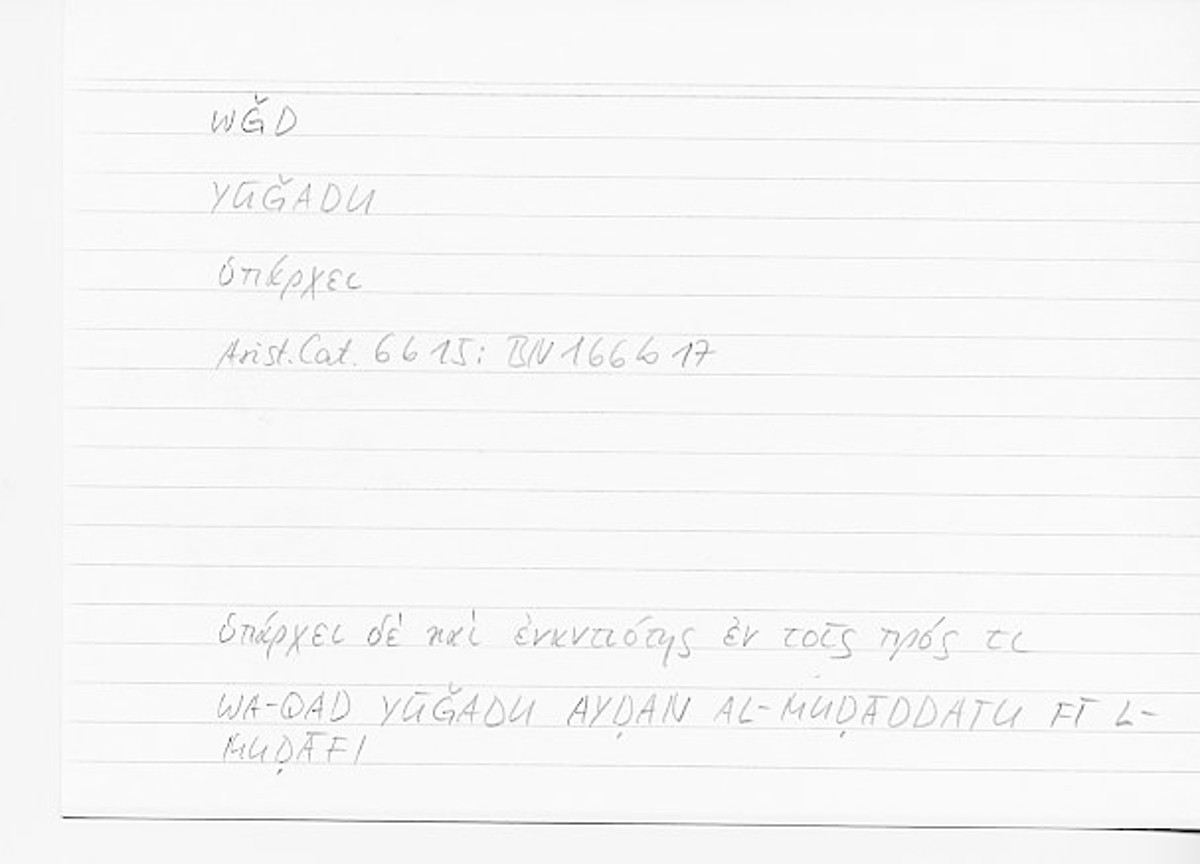 WĞD
YŪĞADU
ὑπάρχει
Arist. Cat. 6b15: BN 166b17
ὑπάρχει δὲ καὶ ἐναντιότης ἐν τοῖς πρός τι
WA-QAD YŪĞADU AYḌAN AL-MUḌĀDDATU FĪ L-
MUḌĀFI